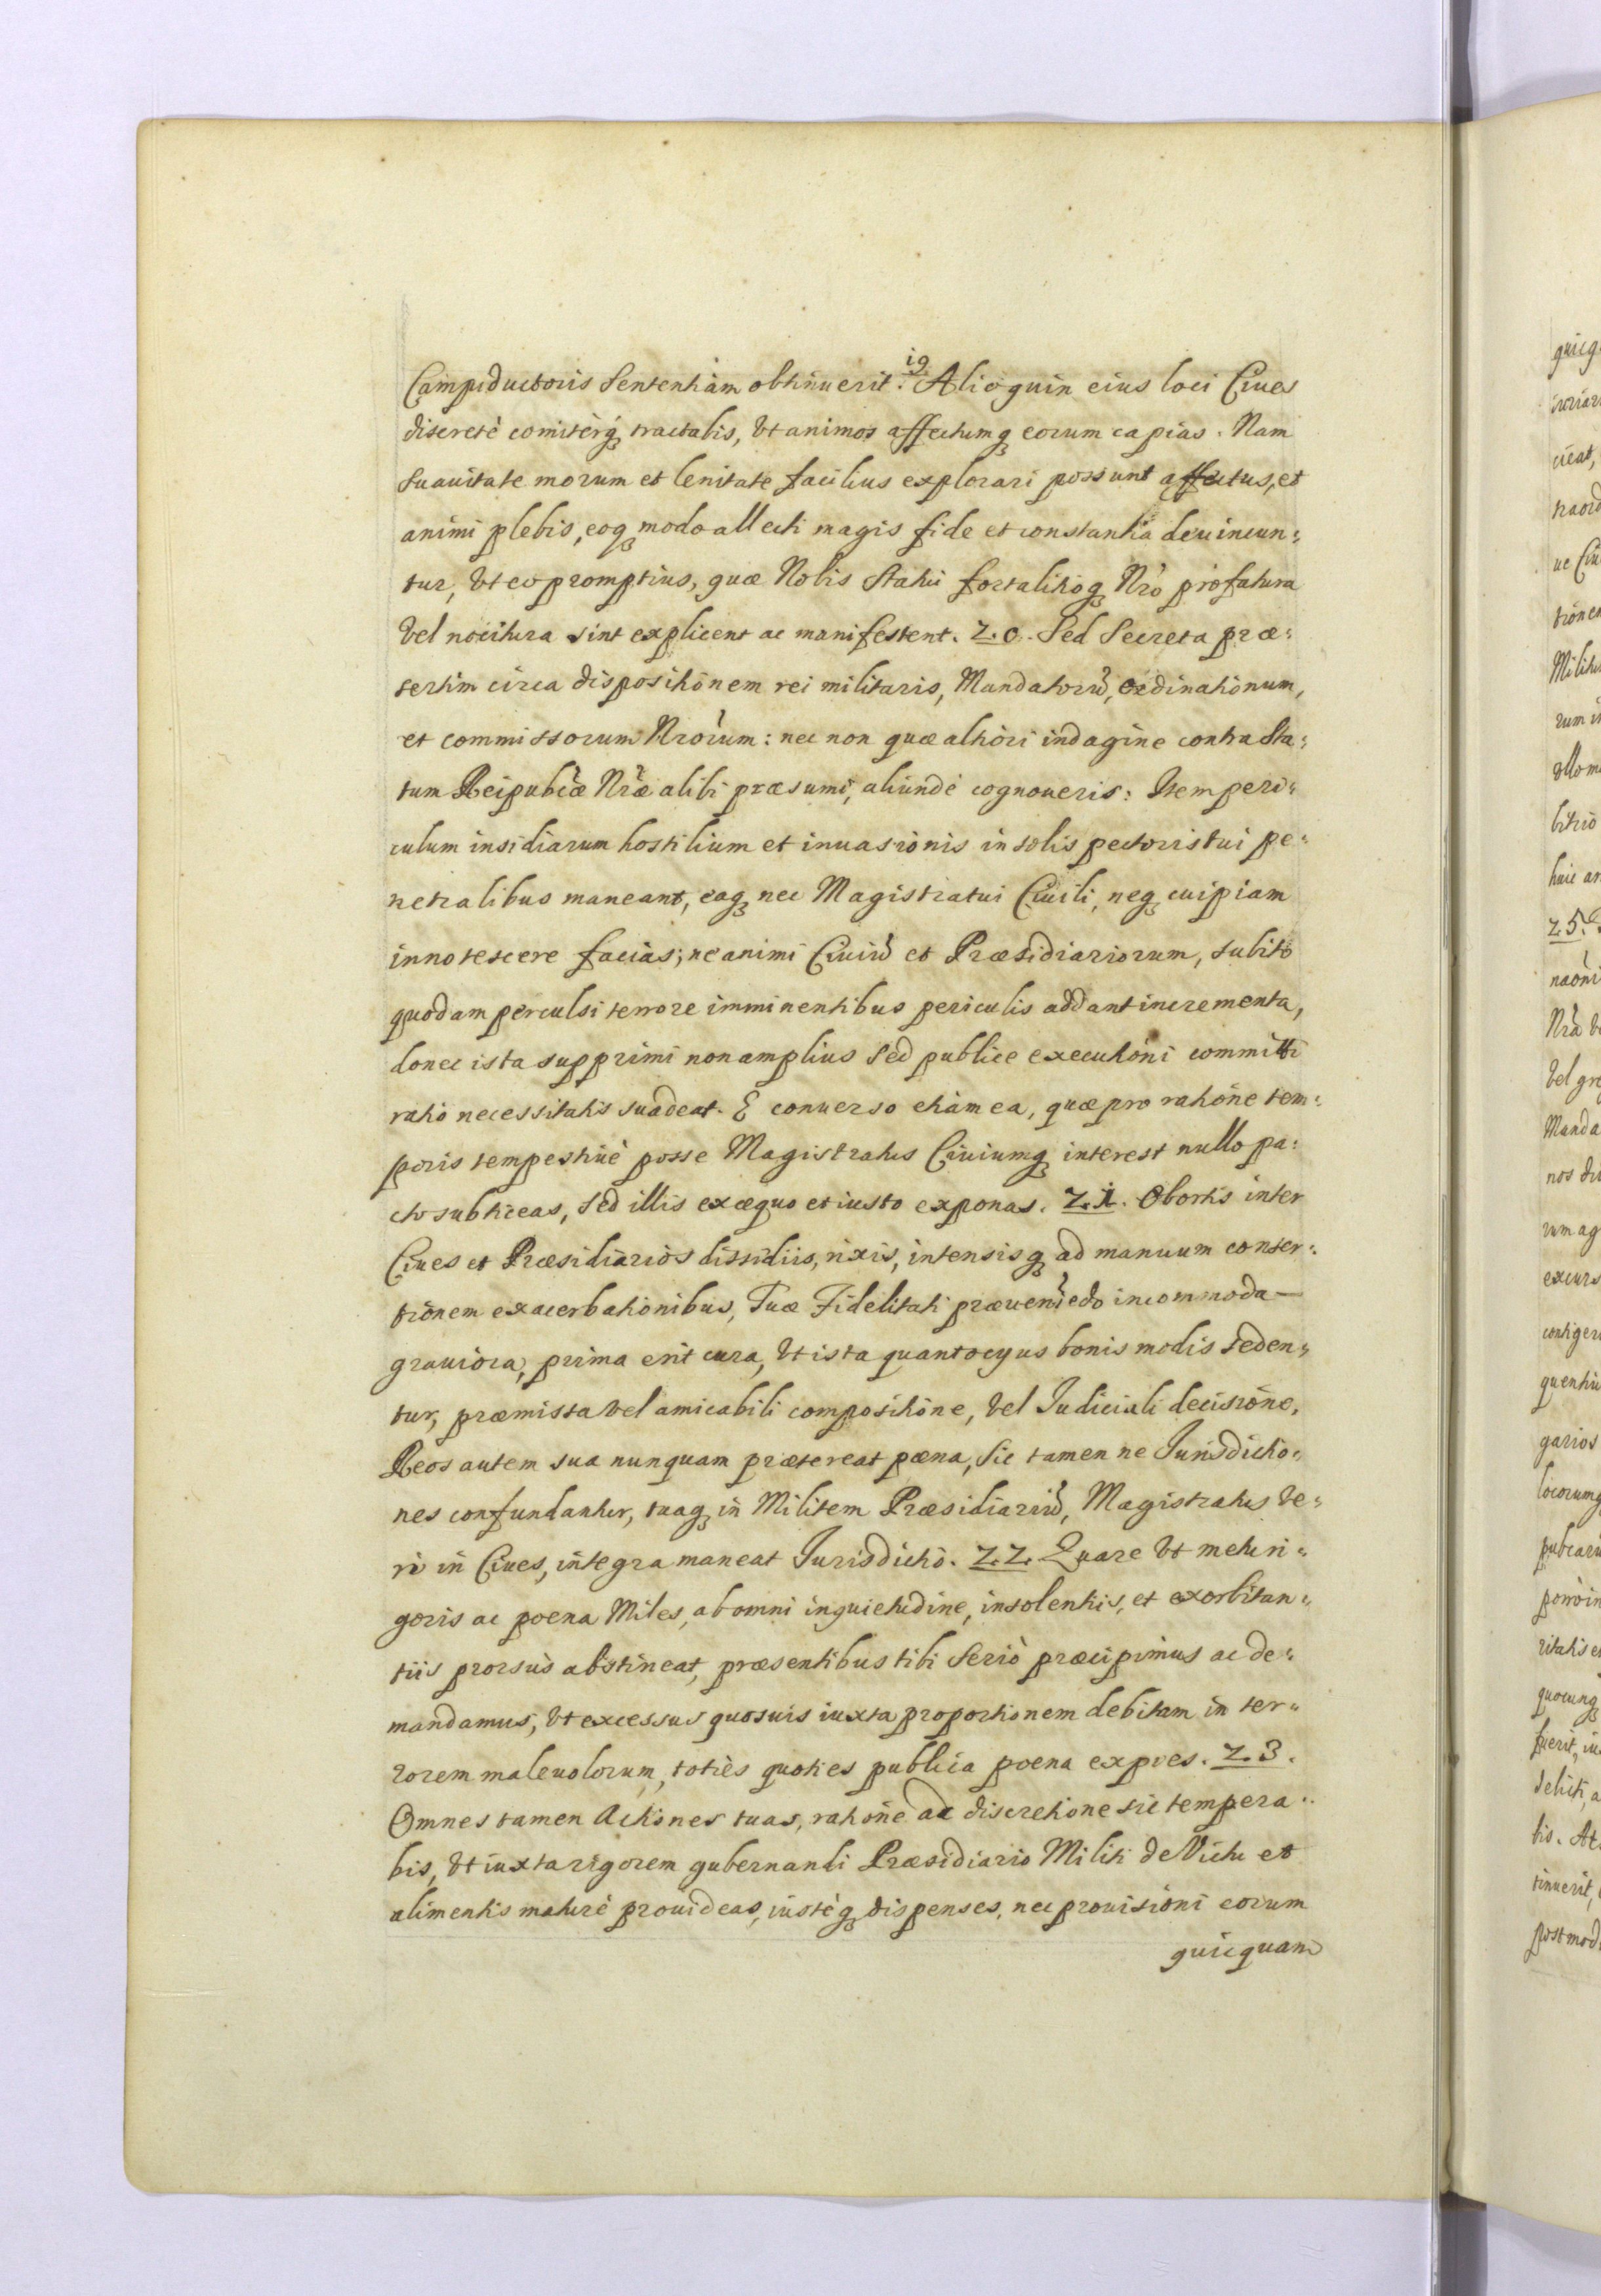 Campiductoris Sententiàm obtinuerit. 19 Alioquin eius loci Ciues
discretè comitèrq́ tractabis, Vt animos affectumq́ eorum capias. Nam
Suauitate morum et lenitate facilius explorari possunt affectus, et
animi plebis, eoq́ modo allecti magis fide et constantia deuincun:
tur, Vt eo promptius, quæ Nobis Statui fortalitioq́ Nrò profatura
Vel nocitura sint explicent ac manifestent. 20. Sed Secreta præ:
sertim circa dispositiònem rei militaris, Mandatorũ, Ordinationum,
et commissorum Nròrum: nec non quæ altiòri indagine contra Sta:
tum Reipubcæ Nræ alibi præsumi, aliundè cognoueris: Item peri:
culum insidiarum hostilium et inuasionis in solis pectoris tui pe:
netralibus maneant, eaq́ nec Magistratui Ciuili, neq́ cuipiam
innotescere facias; ne animi Ciuiũ et Præsidiariorum, subito
quodam perculsi terrore imminentibus periculis addant incrementa,
donec ista supprimi non amplius Sed publice executiòni committi
ratio necessitatis suadeat. E conuerso etiàm ea, quæ pro ratiòne tem:
poris tempestiuè posse Magistratus Ciuiumq́ interest nullo pa:
cto subticeas, Sed illis ex æquo et iusto exponas. 21. Obortis inter
Ciues et Præsidiarios dissidiis, rixis, intensisq́ ad manuum conser:
tionem exacerbationibus, Tuæ Fidelitati præueniẽdo incommoda
grauiora, prima erit cura, Vt ista quantocyus bonis modis seden:
tur, præmissa vel amicabili compositiòne, Vel Iudiciali decisiòne,
Reos autem sua nunquam prætereat pæna, Sic tamen ne Jurisdictio:
nes confundantur, tuaq́ in Militem Præsidiariũ, Magistratus Ve:
rò in Ciues, integra maneat Jurisdictiò. 22. Quare Vt metu ri:
goris ac poena Miles, ab omni inquietudine, insolentiis, et exorbitan:
tiis prorsùs abstineat, præsentibus tibi Seriò præcipimus ac de:
mandamus, Vt excessus quosuis iuxta proportionem debitam in ter:
rorem maleuolorum, totiès quoties publica poena expies. 23.
Omnes tamen Actiònes tuas, ratiòne ac discretione sic tempera:
bis, Vt iuxta rigorem gubernandi Præsidiario Militi de Victu et
alimentis maturè prouideas, iustèq́ dispenses, nec prouisioni eorum
quicquam